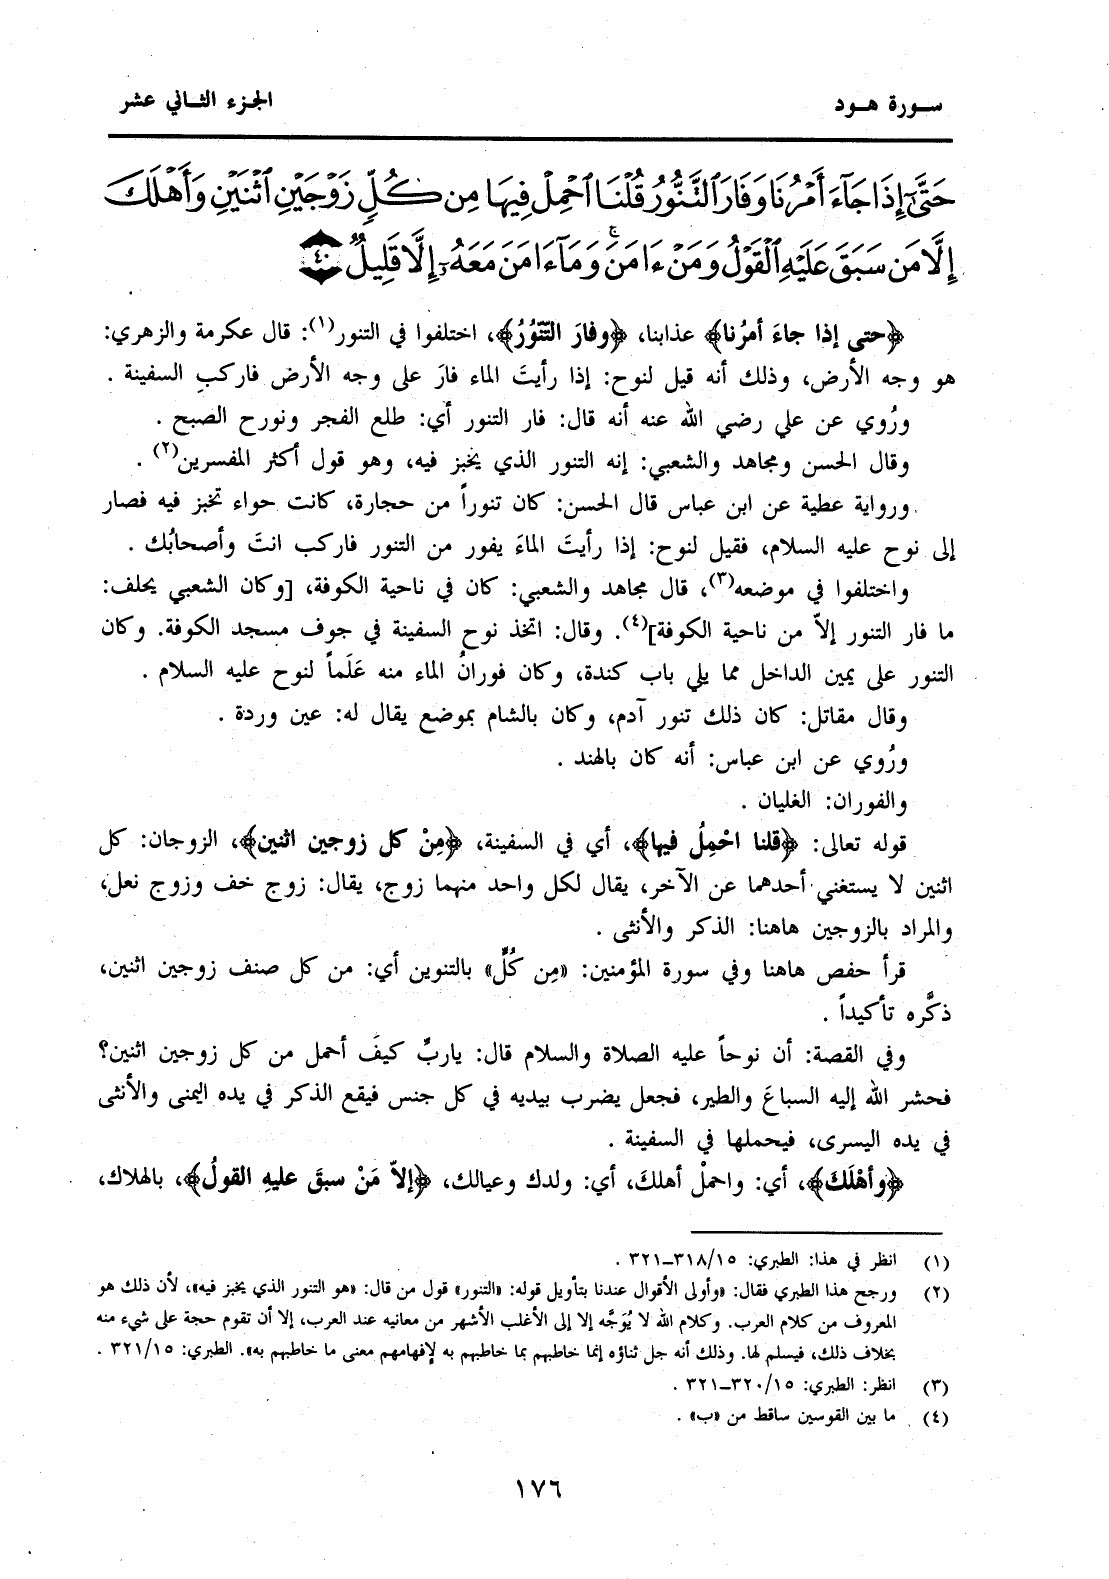 سورة هود
الجزء الثاني عشر
حَتَّىٰٓ إِذَا جَآءَ أَمْرُنَا وَفَارَ ٱلتَّنُّورُ قُلْنَا ٱحْمِلْ فِيهَا مِن كُلٍّ زَوْجَيْنِ ٱثْنَيْنِ وَأَهْلَكَ
إِلَّا مَن سَبَقَ عَلَيْهِ ٱلْقَوْلُ وَمَنْ ءَامَنَ ۚ وَمَآ ءَامَنَ مَعَهُۥٓ إِلَّا قَلِيلٌ ٤٠
﴿حتى إذا جاءَ أمرُنا﴾ عذابنا، ﴿وفارَ التّنّورُ﴾، اختلفوا في التنور(١): قال عكرمة والزهري:
هو وجه الأرض، وذلك أنه قيل لنوح: إذا رأيتَ الماء فارَ على وجه الأرض فاركبِ السفينة .
ورُوي عن علي رضي الله عنه أنه قال: فار التنور أي: طلع الفجر ونورح الصبح .
وقال الحسن ومجاهد والشعبي: إنه التنور الذي يخبز فيه، وهو قول أكثر المفسرين(٢) .
ورواية عطية عن ابن عباس قال الحسن: كان تنوراً من حجارة، كانت حواء تخبز فيه فصار
إلى نوح عليه السلام، فقيل لنوح: إذا رأيتَ الماءَ يفور من التنور فاركب انتَ وأصحابُك .
واختلفوا في موضعه(٣)، قال مجاهد والشعبي: كان في ناحية الكوفة، [وكان الشعبي يحلف:
ما فار التنور إلاّ من ناحية الكوفة](٤). وقال: اتخذ نوح السفينة في جوف مسجد الكوفة. وكان
التنور على يمين الداخل مما يلي باب كندة، وكان فورانُ الماء منه عَلَماً لنوح عليه السلام .
وقال مقاتل: كان ذلك تنور آدم، وكان بالشام بموضع يقال له: عين وردة .
ورُوي عن ابن عباس: أنه كان بالهند .
والفوران: الغليان .
قوله تعالى: ﴿قلنا احْمِلْ فيها﴾، أي في السفينة، ﴿مِنْ كل زوجين اثنين﴾، الزوجان: كل
اثنين لا يستغني أحدهما عن الآخر، يقال لكل واحد منهما زوج، يقال: زوج خف وزوج نعل،
والمراد بالزوجين هاهنا: الذكر والأنثى .
قرأ حفص هاهنا وفي سورة المؤمنين: «مِن كُلٍّ» بالتنوين أي: من كل صنف زوجين اثنين،
ذكَّره تأكيداً .
وفي القصة: أن نوحاً عليه الصلاة والسلام قال: ياربِّ كيفَ أحمل من كل زوجين اثنين؟
فحشر الله إليه السباعَ والطير، فجعل يضرب بيديه في كل جنس فيقع الذكر في يده اليمنى والأنثى
في يده اليسرى، فيحملها في السفينة .
﴿وأهْلَكَ﴾، أي: واحملْ أهلكَ، أي: ولدك وعيالك، ﴿إلاّ مَنْ سبقَ عليهِ القولُ﴾، بالهلاك،
(١) انظر في هذا: الطبري: ٣١٨/١٥ـ٣٢١ .
(٢) ورجح هذا الطبري فقال: «وأولى الأقوال عندنا بتأويل قوله: «التنور» قول من قال: «هو التنور الذي يخبز فيه»، لأن ذلك هو
المعروف من كلام العرب. وكلام الله لا يُوَجَّه إلا إلى الأغلب الأشهر من معانيه عند العرب، إلا أن تقوم حجة على شيء منه
بخلاف ذلك، فيسلم لها. وذلك أنه جل ثناؤه إنما خاطبهم بما خاطبهم به لإفهامهم معنى ما خاطبهم به». الطبري: ٣٢١/١٥ .
(٣) انظر: الطبري: ٣٢٠/١٥ـ٣٢١ .
(٤) ما بين القوسين ساقط من «ب» .
١٧٦